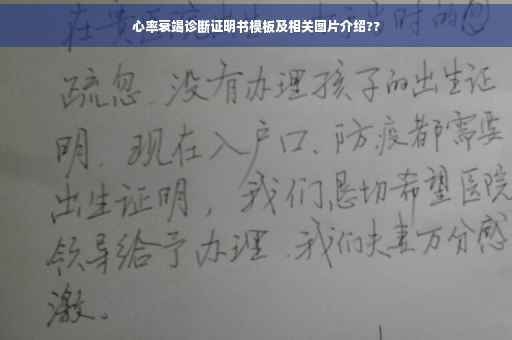 心率衰竭诊断证明书模板及相关图片介绍??
时的
疏忽、没有办理孩子的出生证
明、现在入户口、防疫都需要
出生证明，我们恳切希望医院
领导给予办理、我们夫妻万分感
激。